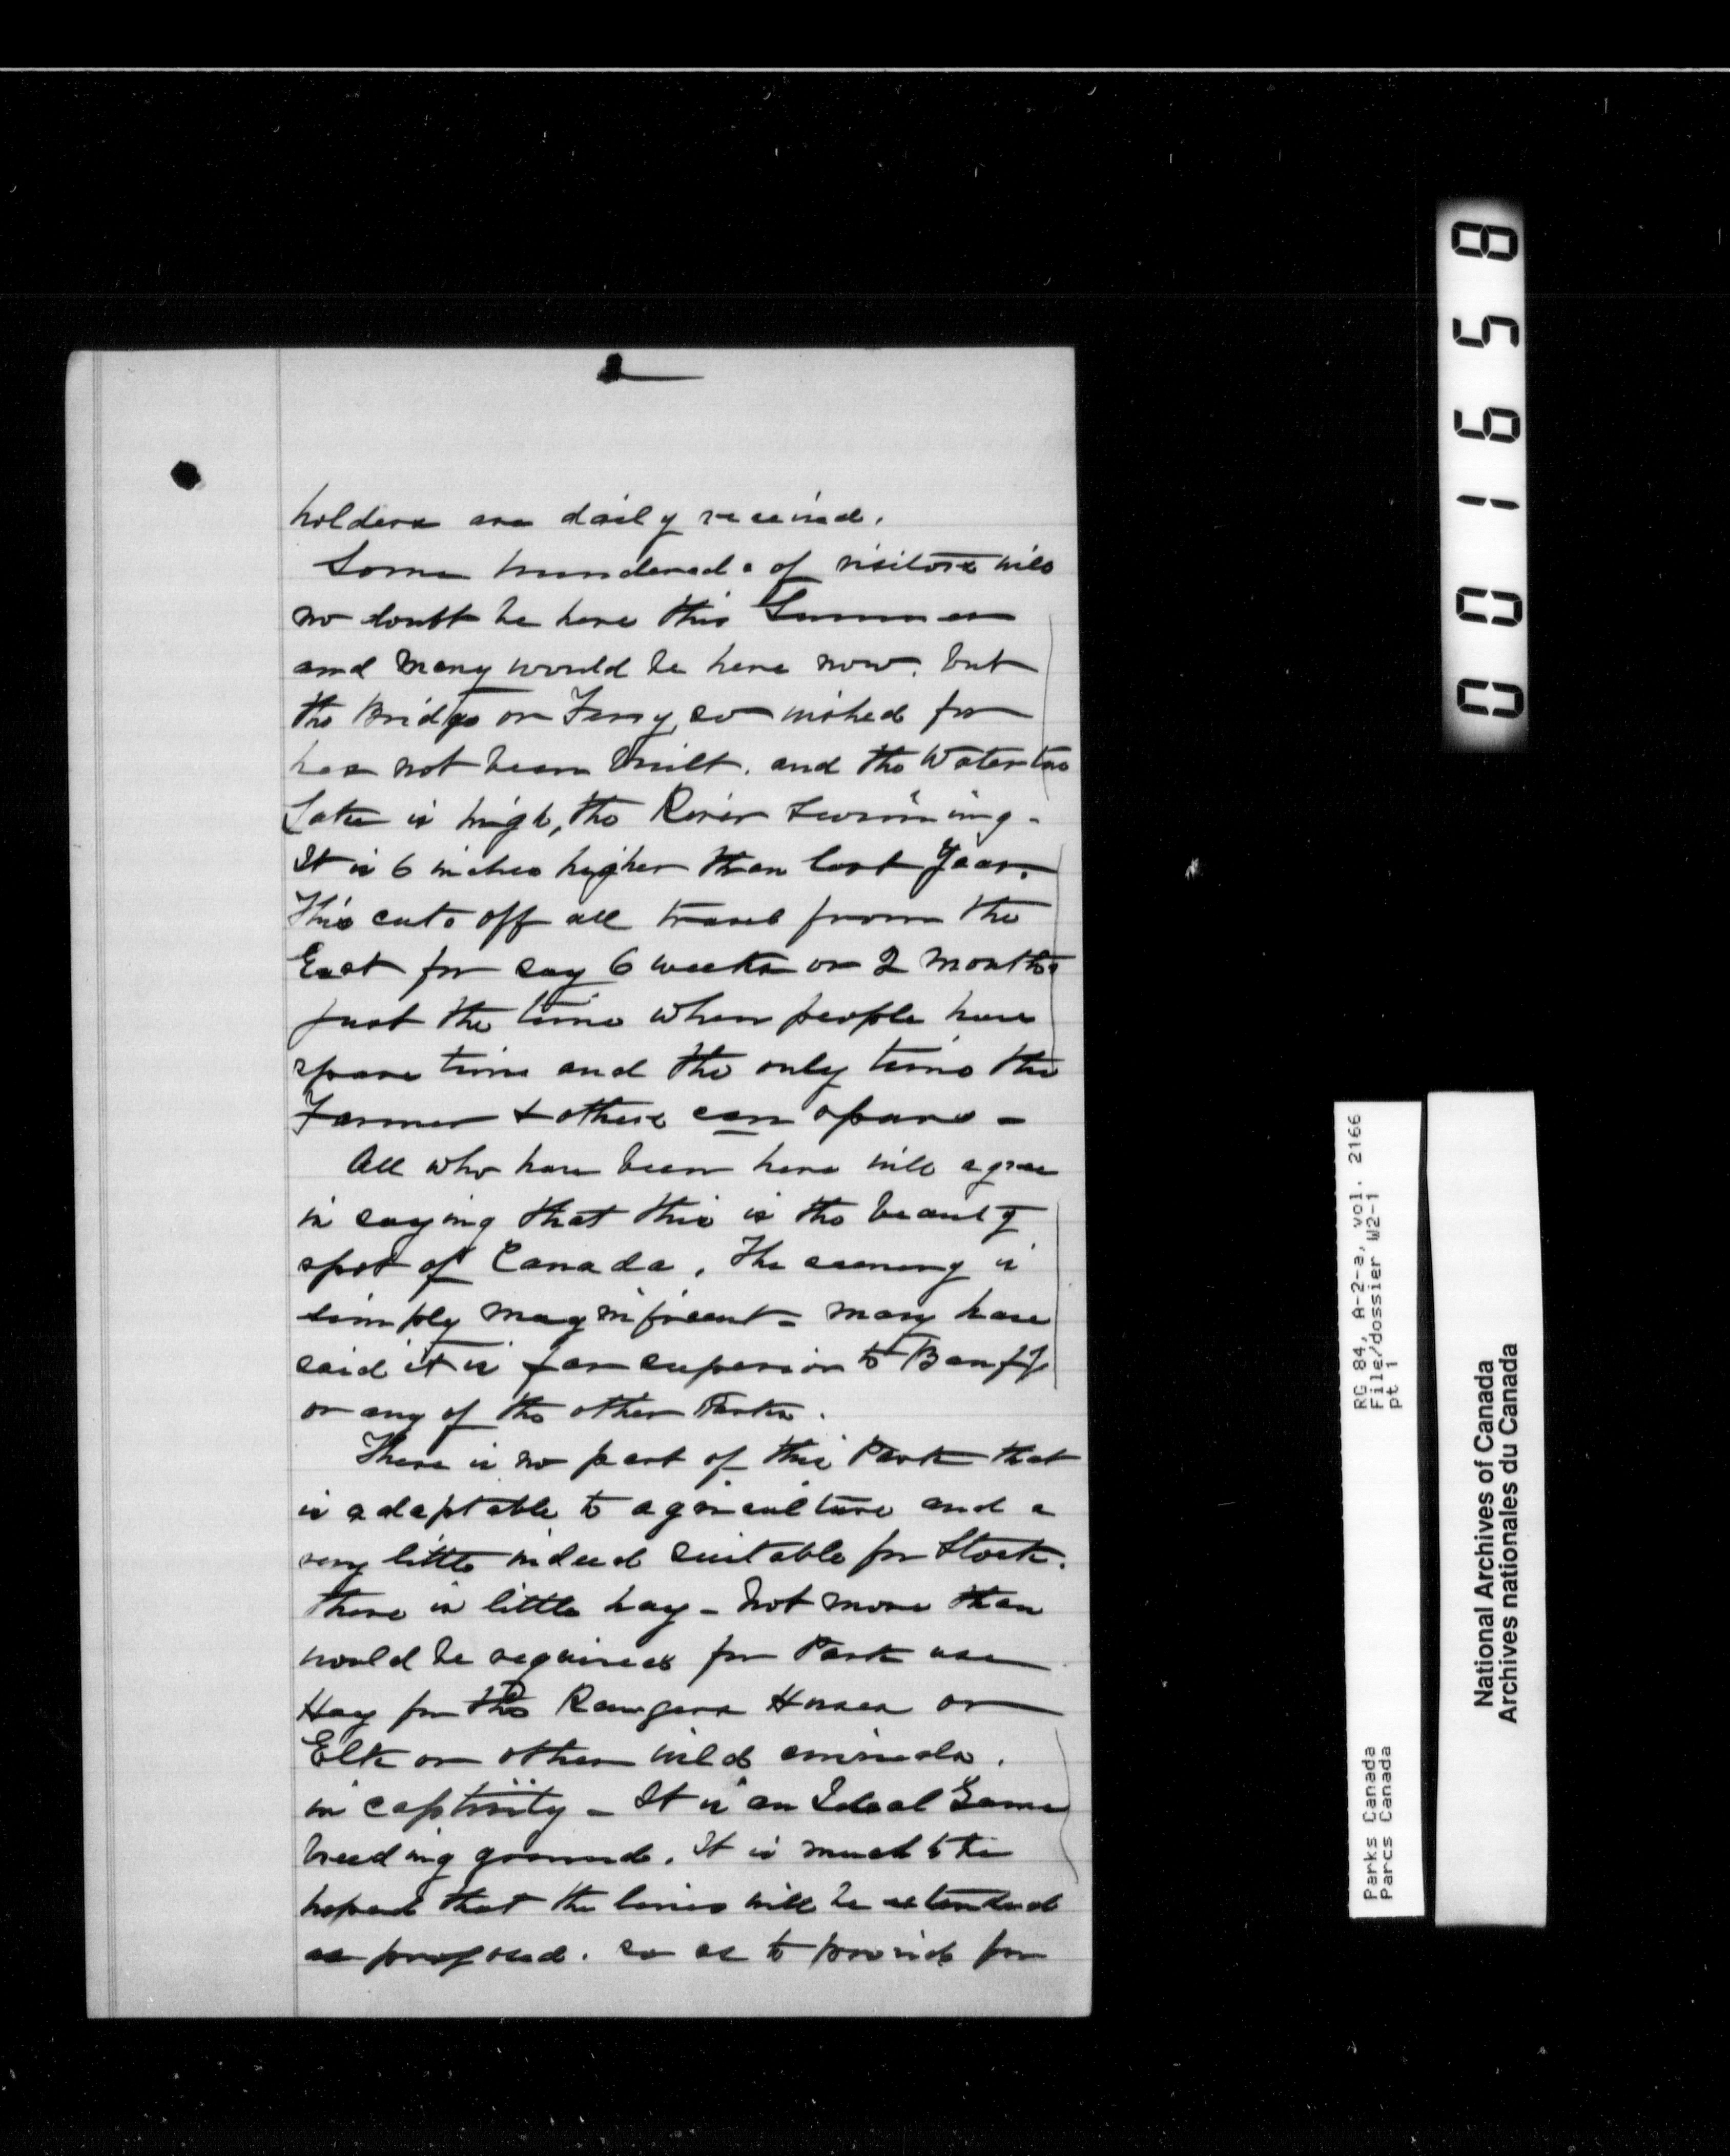 2
holders are daily received.
Some hundereds of visitors will
no doubt be here this Summer
and many would be here now. but
the Bridge or Ferry, so wished for
has not been built. and the Waterton
Lake is high, the River swimming -
It is 6 inches higher than last Year.
This cuts off all travel from the
East for say 6 weeks or 2 months
just the time when people have
spare time and the only time the
Farmer & others can spare -
All who have been here will agree
in saying that this is the beauty
spot of Canada, The scenery is
simply magnificent - many have
said it is far superior to Banff
or any of the other Parks.
There is no part of this Park that
is adaptable to agriculture and a
very little indeed suitable for Stock.
there is little hay - not more than
would be required for Park use
Hay for the Rangers Horses or
Elk or other wild animals.
in captivity - It is an Ideal Game
breeding ground. It is much to be
hoped that the lines will be extended
as proposed. so as to provide for
001658
RG 84, A-2-a, vol. 2166
File/dossier W2-1
pt 1
Parks Canada
Parcs Canada
National Archives of Canada
Archives nationales du Canada